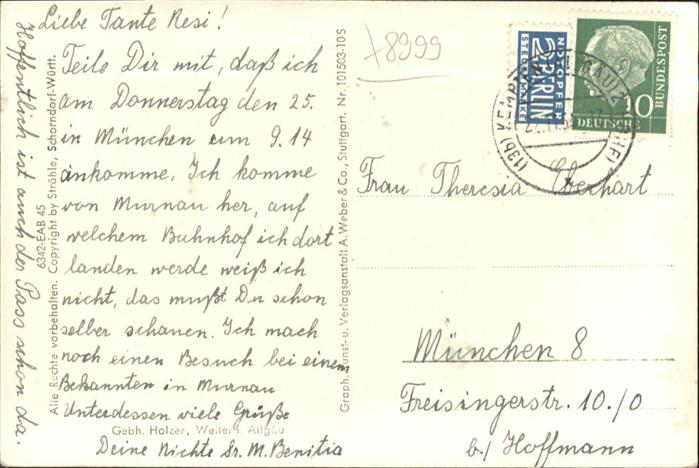 Liebe Tante Resi!
Teile Dir mit, daß ich
am Donnerstag den 25.
in München um 9.14
ankomme. Ich komme
von Murnau her, auf
welchem Bahnhof ich dort
landen werde weiß ich
nicht, das mußt Du schon
selber schauen. Ich mach
noch einen Besuch bei einem
Bekannten in Murnau
Unterdessen viele Grüße
Deine Nichte Sr. M. Benitia
Hoffentlich ist auch der Pass schon da.
Gebh. Holzer, Weitern Allgäu
Alle Rechte vorbehalten. Copyright by Strähle, Schorndorf-Württ.
6342-EAB 45
Graph. Kunst- u. Verlagsanstalt A. Weber & Co., Stuttgart. Nr. 101503-10 S
+8999
NOTOPFER
2 BERLIN
STEUERMARKE
10
DEUTSCHE
BUNDESPOST
(13b) KEMPTEN
Frau Theresia Eberhart
München 8
Freisingerstr. 10./0
b/ Hoffmann